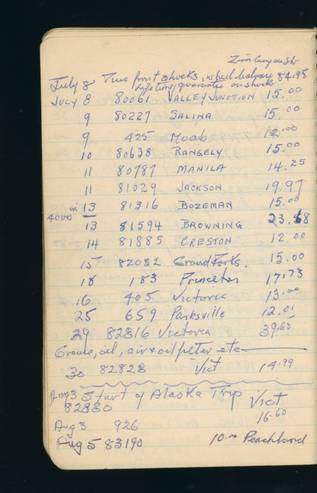 July 8 Two front shocks, wheel balance 84.95
Lifetime guarantee on shocks
July 8 80061 Valley Junction 15.00
9 80227 Salina 15.00
9 425 Moab 12.00
10 80638 Rangely 15.00
11 80787 Manila 14.25
11 81029 Jackson 19.97
4000 m 13 81316 Bozeman 15.00
13 81594 Browning 23.68
14 81885 Creston 12.00
15 82082 Grand Forks 15.00
18 183 Princeton 17.73
16 405 Victoria 13.00
25 659 Parksville 12.01
29 82816 Victoria 39.60
Grease, oil, air & oil filter etc
30 82828 Vict 14.99
Aug 3 Start of Alaska Trip
82880 Vict
Aug 3 926 16.60
Aug 5 83190 10.00 Peachland